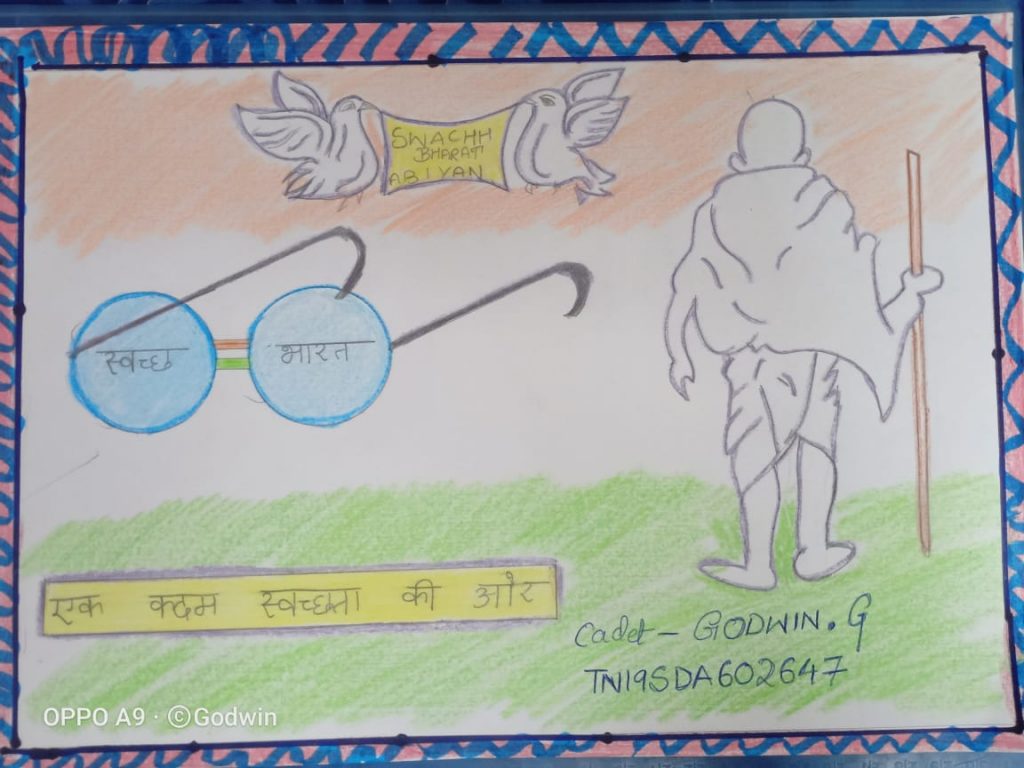 SWACHH
BHARAT
ABIYAN
स्वच्छ
भारत
एक कदम स्वच्छता की और
Cadet - GODWIN. G
TN19SDA602647
OPPO A9 · ©Godwin